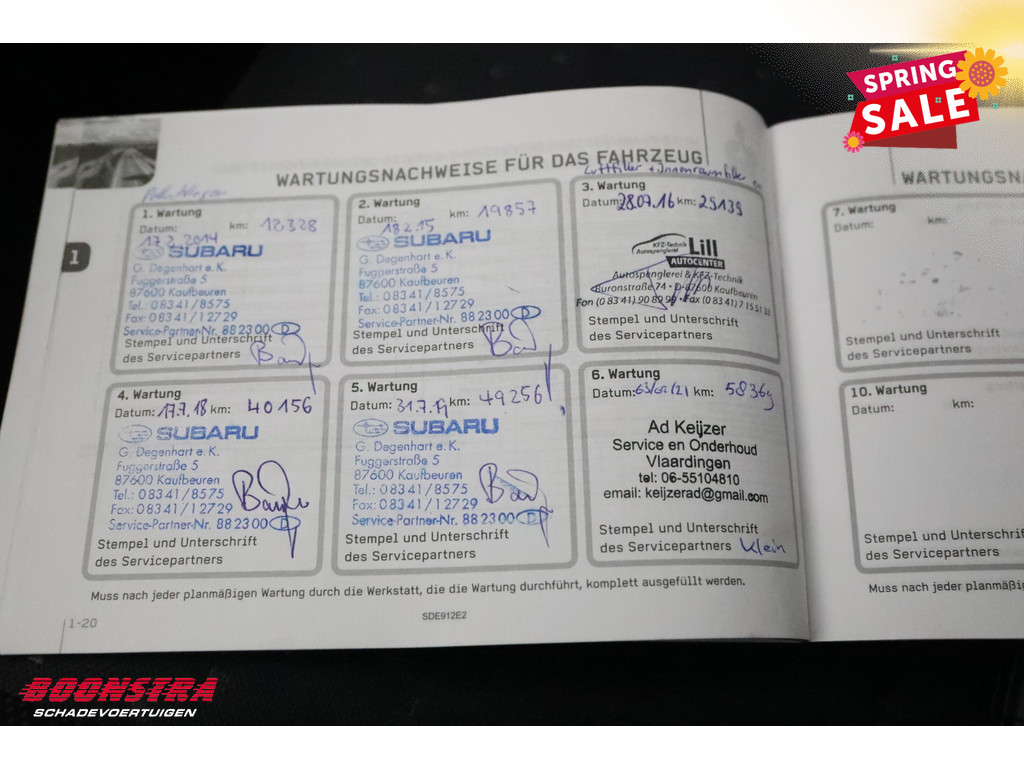 SPRING
SALE
WARTUNGSNACHWEISE FÜR DAS FAHRZEUG
1
1. Wartung
Datum: km: 12328
17.2.2014
SUBARU
G. Degenhart e.K.
Fuggerstraße 5
87600 Kaufbeuren
Tel.: 08341/8575
Fax: 08341/12729
Service-Partner-Nr. 882300 D
Stempel und Unterschrift
des Servicepartners
2. Wartung
Datum: km: 19857
18.2.15
SUBARU
G. Degenhart e.K.
Fuggerstraße 5
87600 Kaufbeuren
Tel.: 08341/8575
Fax: 08341/12729
Service-Partner-Nr. 882300 D
Stempel und Unterschrift
des Servicepartners
Luftfilter + Innenraumfilter
3. Wartung
Datum: 28.07.16 km: 29139
KFZ-Technik
Autospenglerei
Lill
AUTOCENTER
Autospenglerei & KFZ-Technik
Buronstraße 74 • D-87600 Kaufbeuren
Fon (0 83 41) 90 82 99 • Fax (0 83 41) 7 15 51 33
Stempel und Unterschrift
des Servicepartners
4. Wartung
Datum: 17.7.18 km: 40156
SUBARU
G. Degenhart e.K.
Fuggerstraße 5
87600 Kaufbeuren
Tel.: 08341/8575
Fax: 08341/12729
Service-Partner-Nr. 882300 D
Stempel und Unterschrift
des Servicepartners
5. Wartung
Datum: 31.7.19 km: 49256
SUBARU
G. Degenhart e.K.
Fuggerstraße 5
87600 Kaufbeuren
Tel.: 08341/8575
Fax: 08341/12729
Service-Partner-Nr. 882300 D
Stempel und Unterschrift
des Servicepartners
6. Wartung
Datum: km: 58369
Ad Keijzer
Service en Onderhoud
Vlaardingen
tel: 06-55104810
email: keijzerad@gmail.com
Stempel und Unterschrift
des Servicepartners Klein
Muss nach jeder planmäßigen Wartung durch die Werkstatt, die die Wartung durchführt, komplett ausgefüllt werden.
1-20
SDE912E2
WARTUNGSNA
7. Wartung
Datum: km:
Stempel und Unterschrift
des Servicepartners
10. Wartung
Datum: km:
Stempel und Unterschri
des Servicepartners
Muss nach jeder planmäßigen
BOONSTRA
SCHADEVOERTUIGEN